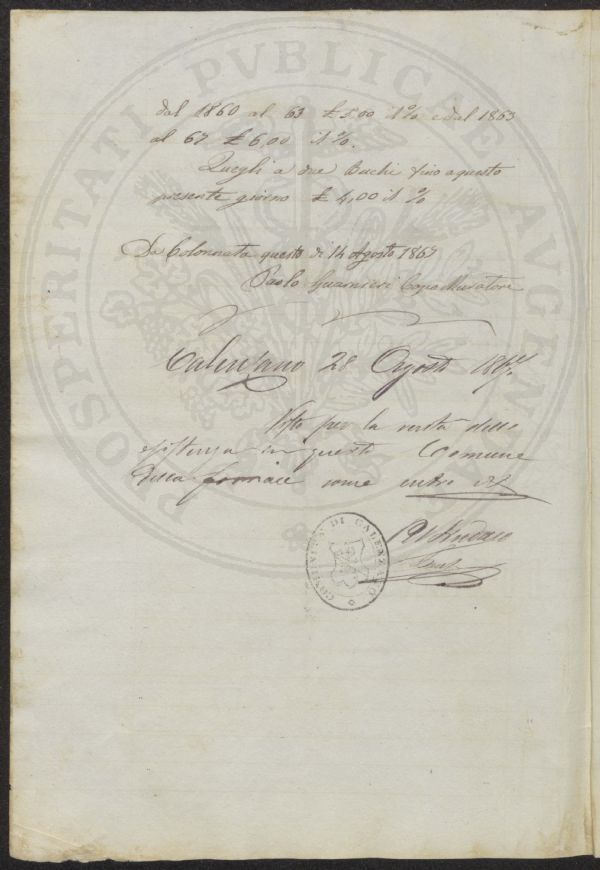 PROSPERITATI PUBLICAE AUGENDAE
dal 1860 al 63 £ 5,00 il % e dal 1863
al 67 £ 6,00 il %.
Quegli a due Buchi fino a questo
presente giorno £ 4,00 il %
Da Colonnata questo dì 14 Agosto 1867
Paolo Guarnieri Capo Muratore
Calenzano 28 Agosto 1867
Visto per la verità della
esistenza in questo Comune
della fornace come
Il Sindaco
COMUNITA DI CALENZANO